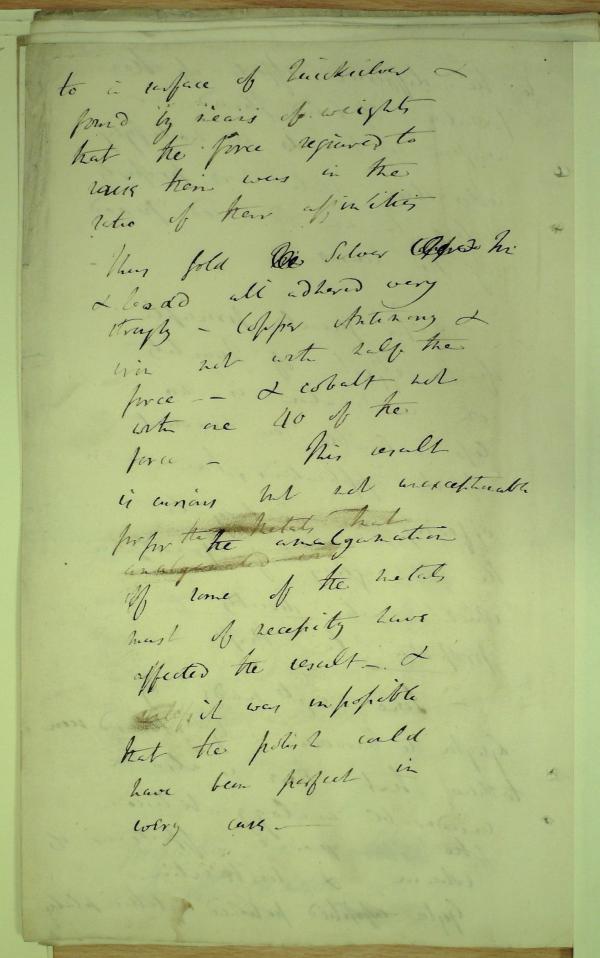 to a surface of Quicksilver &
found by means of weights
that the force required to
raise them was in the
ratio of their affinities
- Thus gold Silver Tin
& lead all adhered very
strongly - Copper Antimony &
iron not with half the
force - - & cobalt not
with one 40 of the
force - This result
is curious but not unexceptionable
for the metals that
for the amalgamation
amalgamated in
of some of the metals
must of necessity have
affected the result - &
it was impossible
that the polish could
have been perfect in
every case -